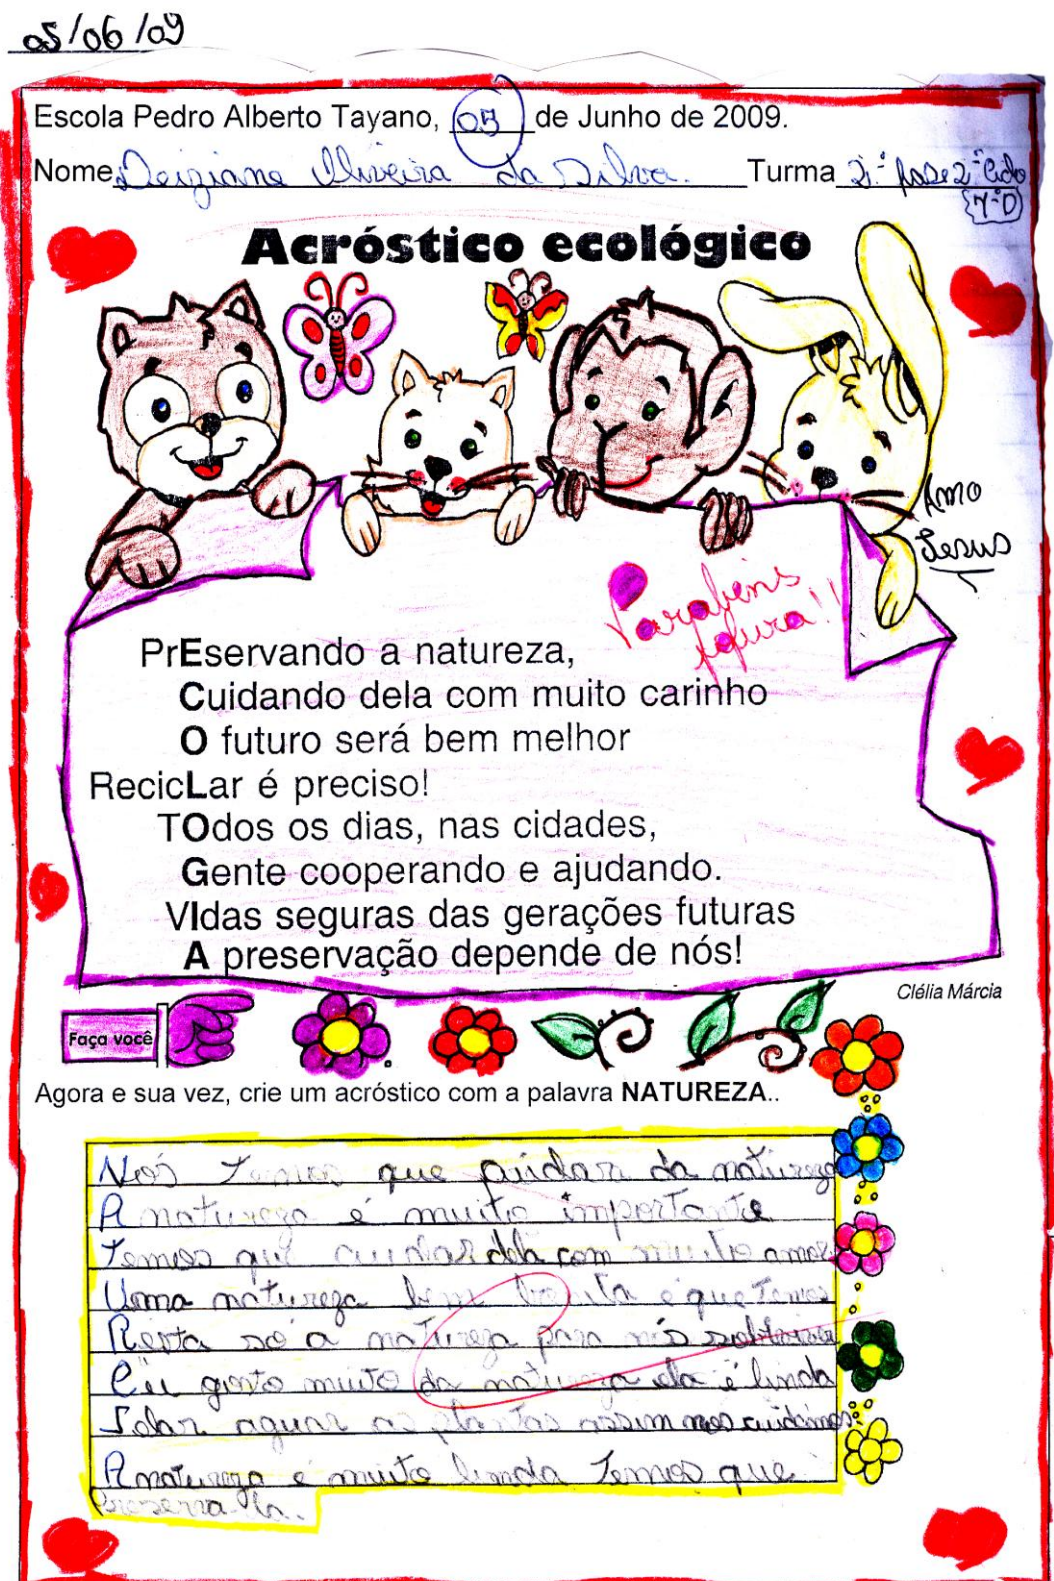 05/06/09
Escola Pedro Alberto Tayano, 05 de Junho de 2009.
Nome Deiziane Oliveira da Silva. Turma 2ª fase 2º Ciclo
(7ºD)
Acróstico ecológico
Amo
Jesus
Parabéns
fofura!!
PrEservando a natureza,
Cuidando dela com muito carinho
O futuro será bem melhor
RecicLar é preciso!
TOdos os dias, nas cidades,
Gente cooperando e ajudando.
VIdas seguras das gerações futuras
A preservação depende de nós!
Clélia Márcia
Faça você
Agora e sua vez, crie um acróstico com a palavra NATUREZA..
Nós Temos que cuidar da natureza
A natureza é muito importante
Temos que cuidar dela com muito amor
Uma natureza bem bonita é que temos
Resta só a natureza para nós
Eu gosto muito da natureza ela é linda
Zelar aguar as plantas assim nos cuidamos
A natureza é muito linda Temos que
preserva-la.